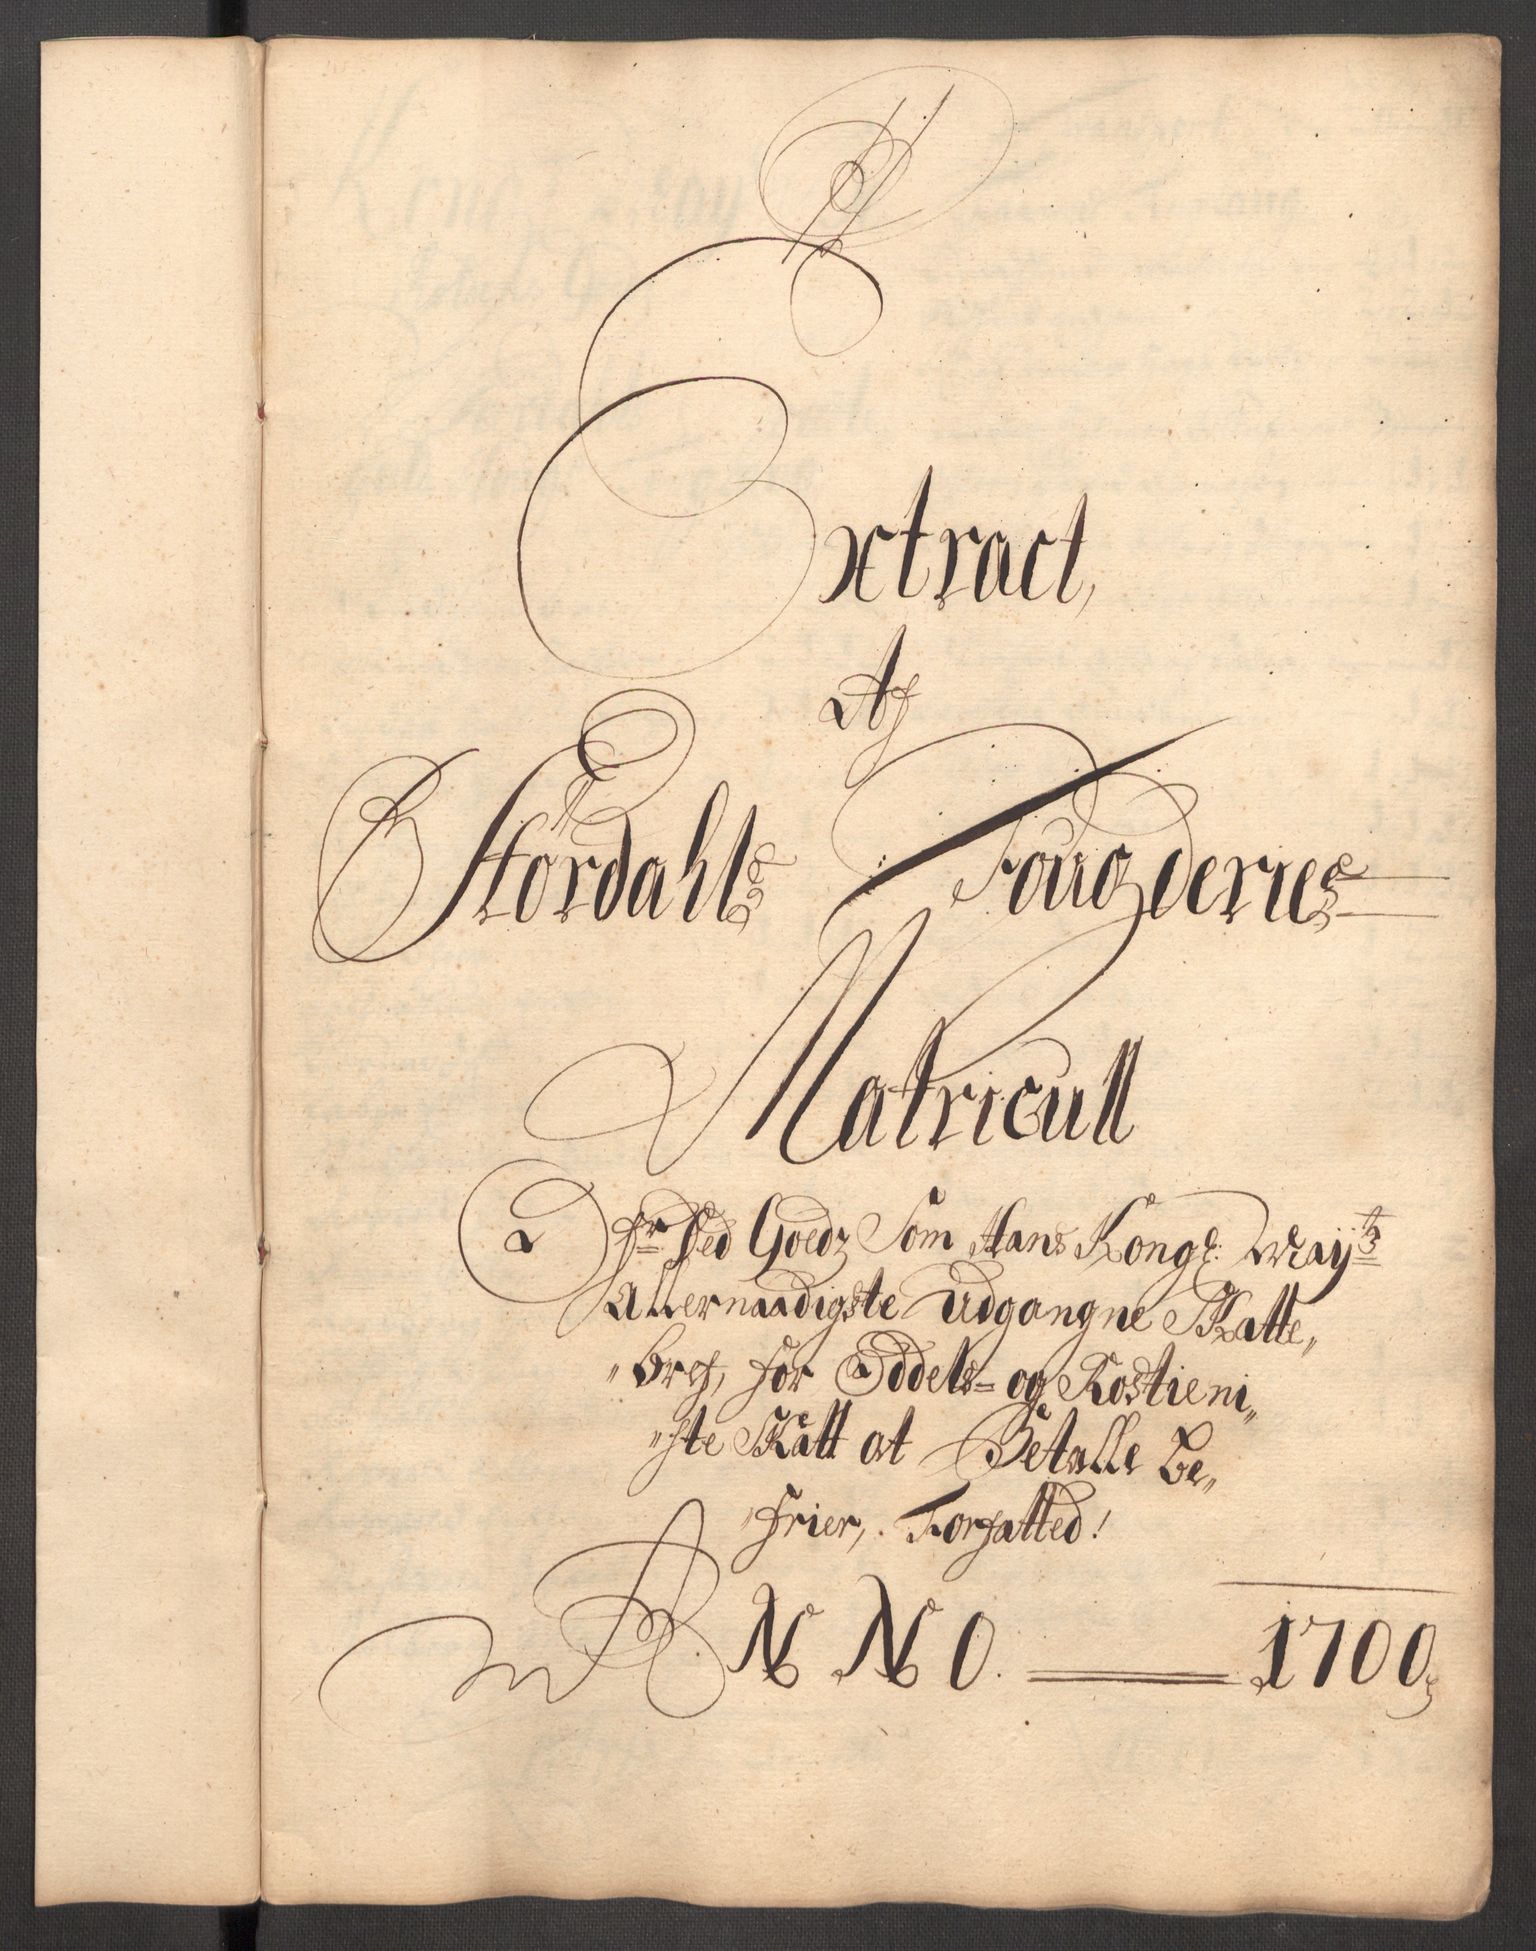 Extract,
Af
Stördahls Fougderies
Matricull
Ofr Ded Goedz Som Hans Kongl: Mayts
Allernaadigste Udgangne Skatte„
„bref, for Oddels= og Rostieni„
„ste Skatt at Betalle be„
„frier, Forfatted!
ANNO. 1700